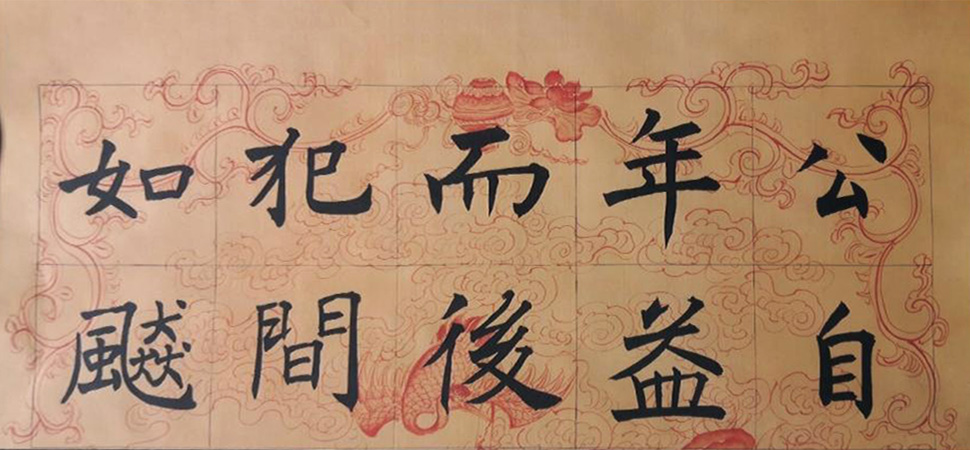 公自
年益
而後
犯間
如飈